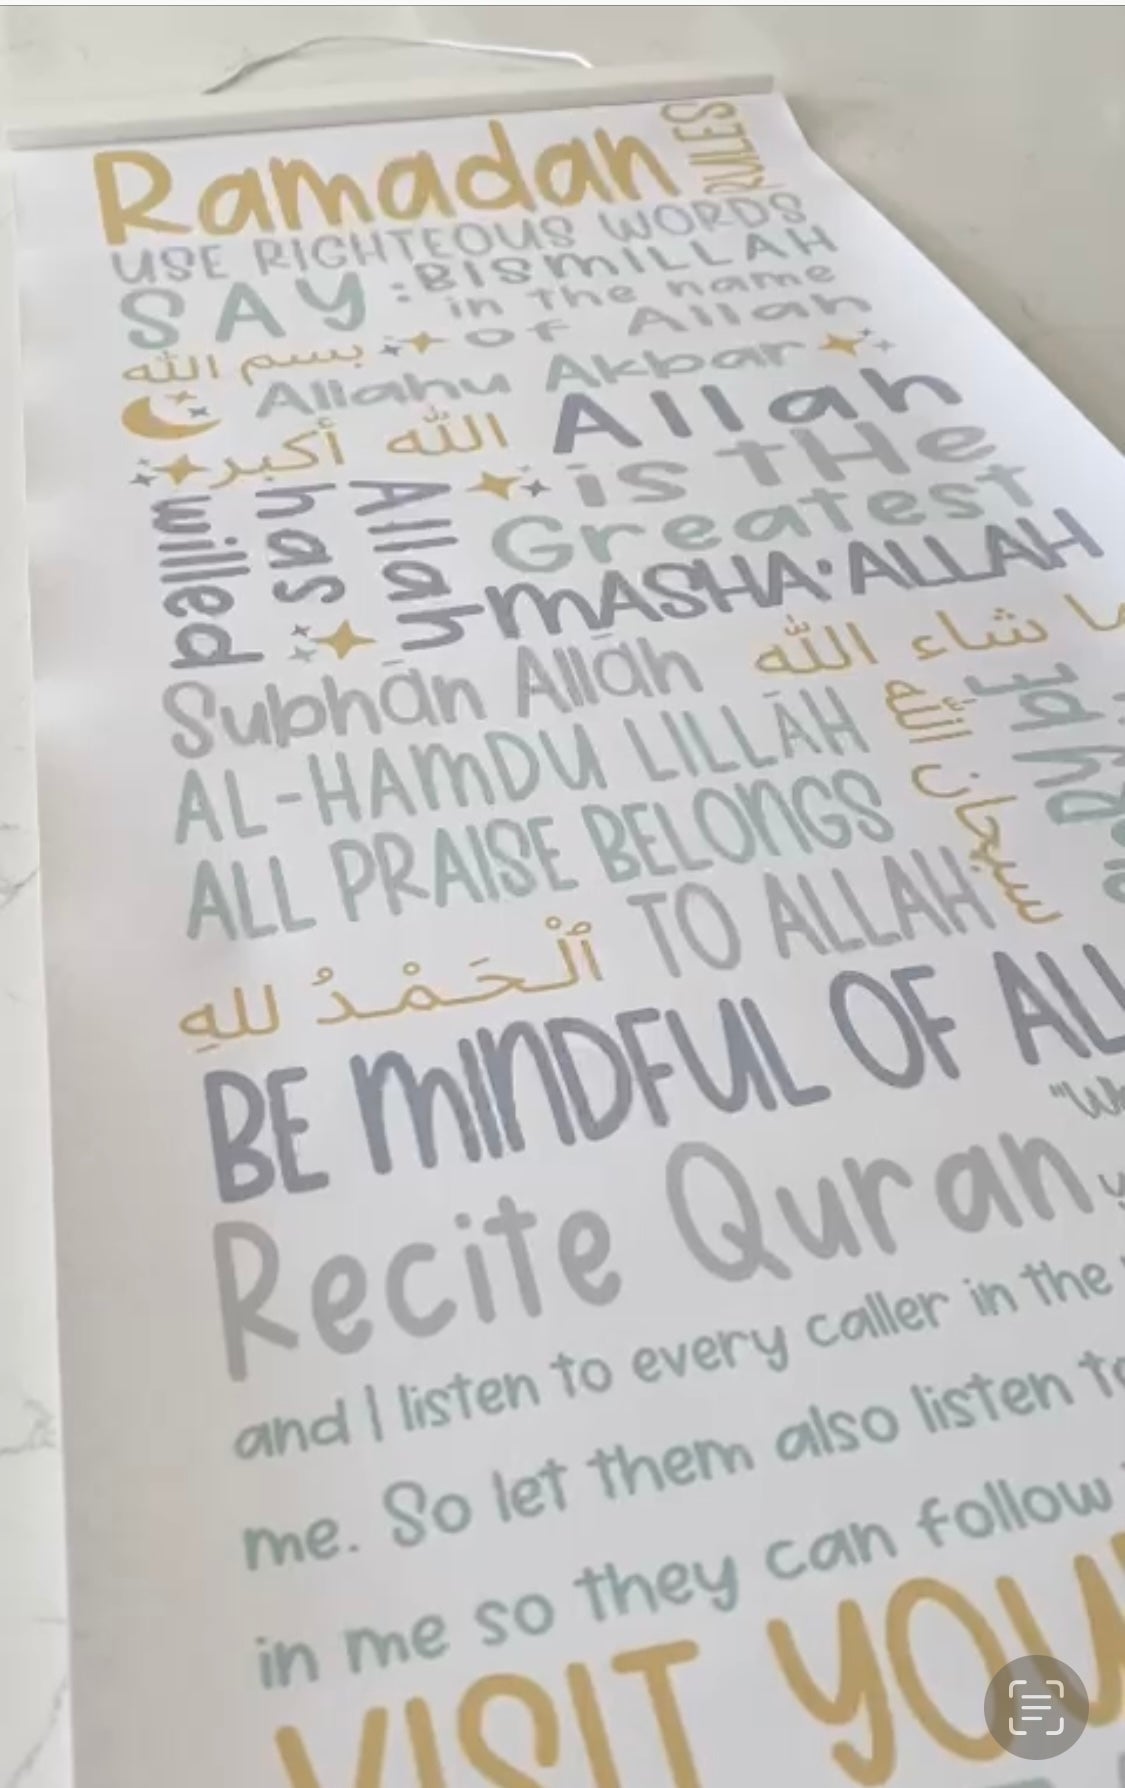 Ramadan RULES
USE RIGHTEOUS WORDS
SAY: BISMILLAH
in the name
of Allah
بسم الله
Allahu Akbar
الله أكبر
Allah
is the
Greatest
Allah
has
willed
MASHA'ALLAH
ما شاء الله
Subhān Allāh
سبحان الله
AL-HAMDU LILLĀH
ALL PRAISE BELONGS
TO ALLAH
ٱلْحَمْدُ للهِ
BE MINDFUL OF
Recite Quran
and I listen to every caller in the
me. So let them also listen
in me so they can follow
VISIT